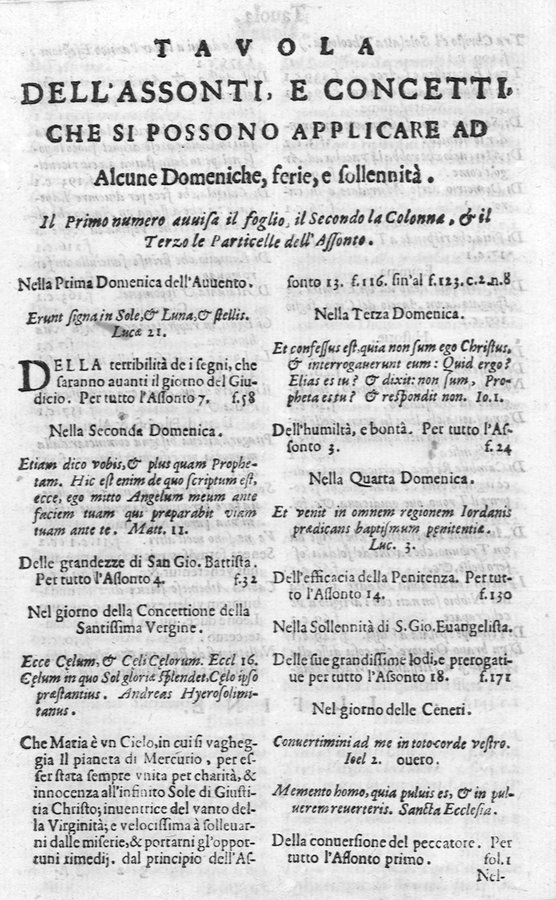 TAVOLA
DELL'ASSONTI, E CONCETTI,
CHE SI POSSONO APPLICARE AD
Alcune Domeniche, ferie, e sollennità.
Il Primo numero auuisa il foglio, il Secondo la Colonna, & il
Terzo le Particelle dell'Assonto.
Nella Prima Domenica dell'Auuento.
Erunt signa in Sole, & Luna, & stellis.
Lucæ 21.
DELLA terribilità de i segni, che
saranno auanti il giorno del Giu-
dicio. Per tutto l'Assonto 7. f.58
Nella Seconda Domenica.
Etiam dico vobis, & plus quam Prophe-
tam. Hic est enim de quo scriptum est,
ecce, ego mitto Angelum meum ante
faciem tuam qui præparabit viam
tuam ante te. Matt. 11.
Delle grandezze di San Gio. Battista.
Per tutto l'Assonto 4. f.32
Nel giorno della Concettione della
Santissima Vergine.
Ecce Cęlum, & Cęli Cęlorum. Eccl 16.
Cęlum in quo Sol gloriæ splendet, Cęlo ipso
præstantius. Andreas Hyerosolimi-
tanus.
Che Maria è vn Cielo, in cui si vagheg-
gia Il pianeta di Mercurio, per es-
ser stata sempre vnita per charità, &
innocenza all'infinito Sole di Giusti-
tia Christo; inuentrice del vanto del-
la Virginità; e velocissima à solleuar-
ni dalle miserie, & portarni gl'oppor-
tuni rimedij. dal principio dell'As-
sonto 13. f.116. sin'al f.123.c.2.n.8
Nella Terza Domenica.
Et confessus est, quia non sum ego Christus,
& interrogauerunt eum: Quid ergo?
Elias es tu? & dixit: non sum, Pro-
pheta es tu? & respondit non. Io.1.
Dell'humiltà, e bontà. Per tutto l'As-
sonto 3. f.24
Nella Quarta Domenica.
Et venit in omnem regionem Iordanis
prædicans baptismum penitentiæ.
Luc. 3.
Dell'efficacia della Penitenza. Per tut-
to l'Assonto 14. f.130
Nella Sollennità di S. Gio. Euangelista.
Delle sue grandissime lodi, e prerogati-
ue per tutto l'Assonto 18. f.171
Nel giorno delle Ceneri.
Conuertimini ad me in toto corde vestro.
Ioel 2. ouero.
Memento homo, quia puluis es, & in pul-
uerem reuerteris. Sancta Ecclesia.
Della conuersione del peccatore. Per
tutto l'Assonto primo. fol.1
Nel-